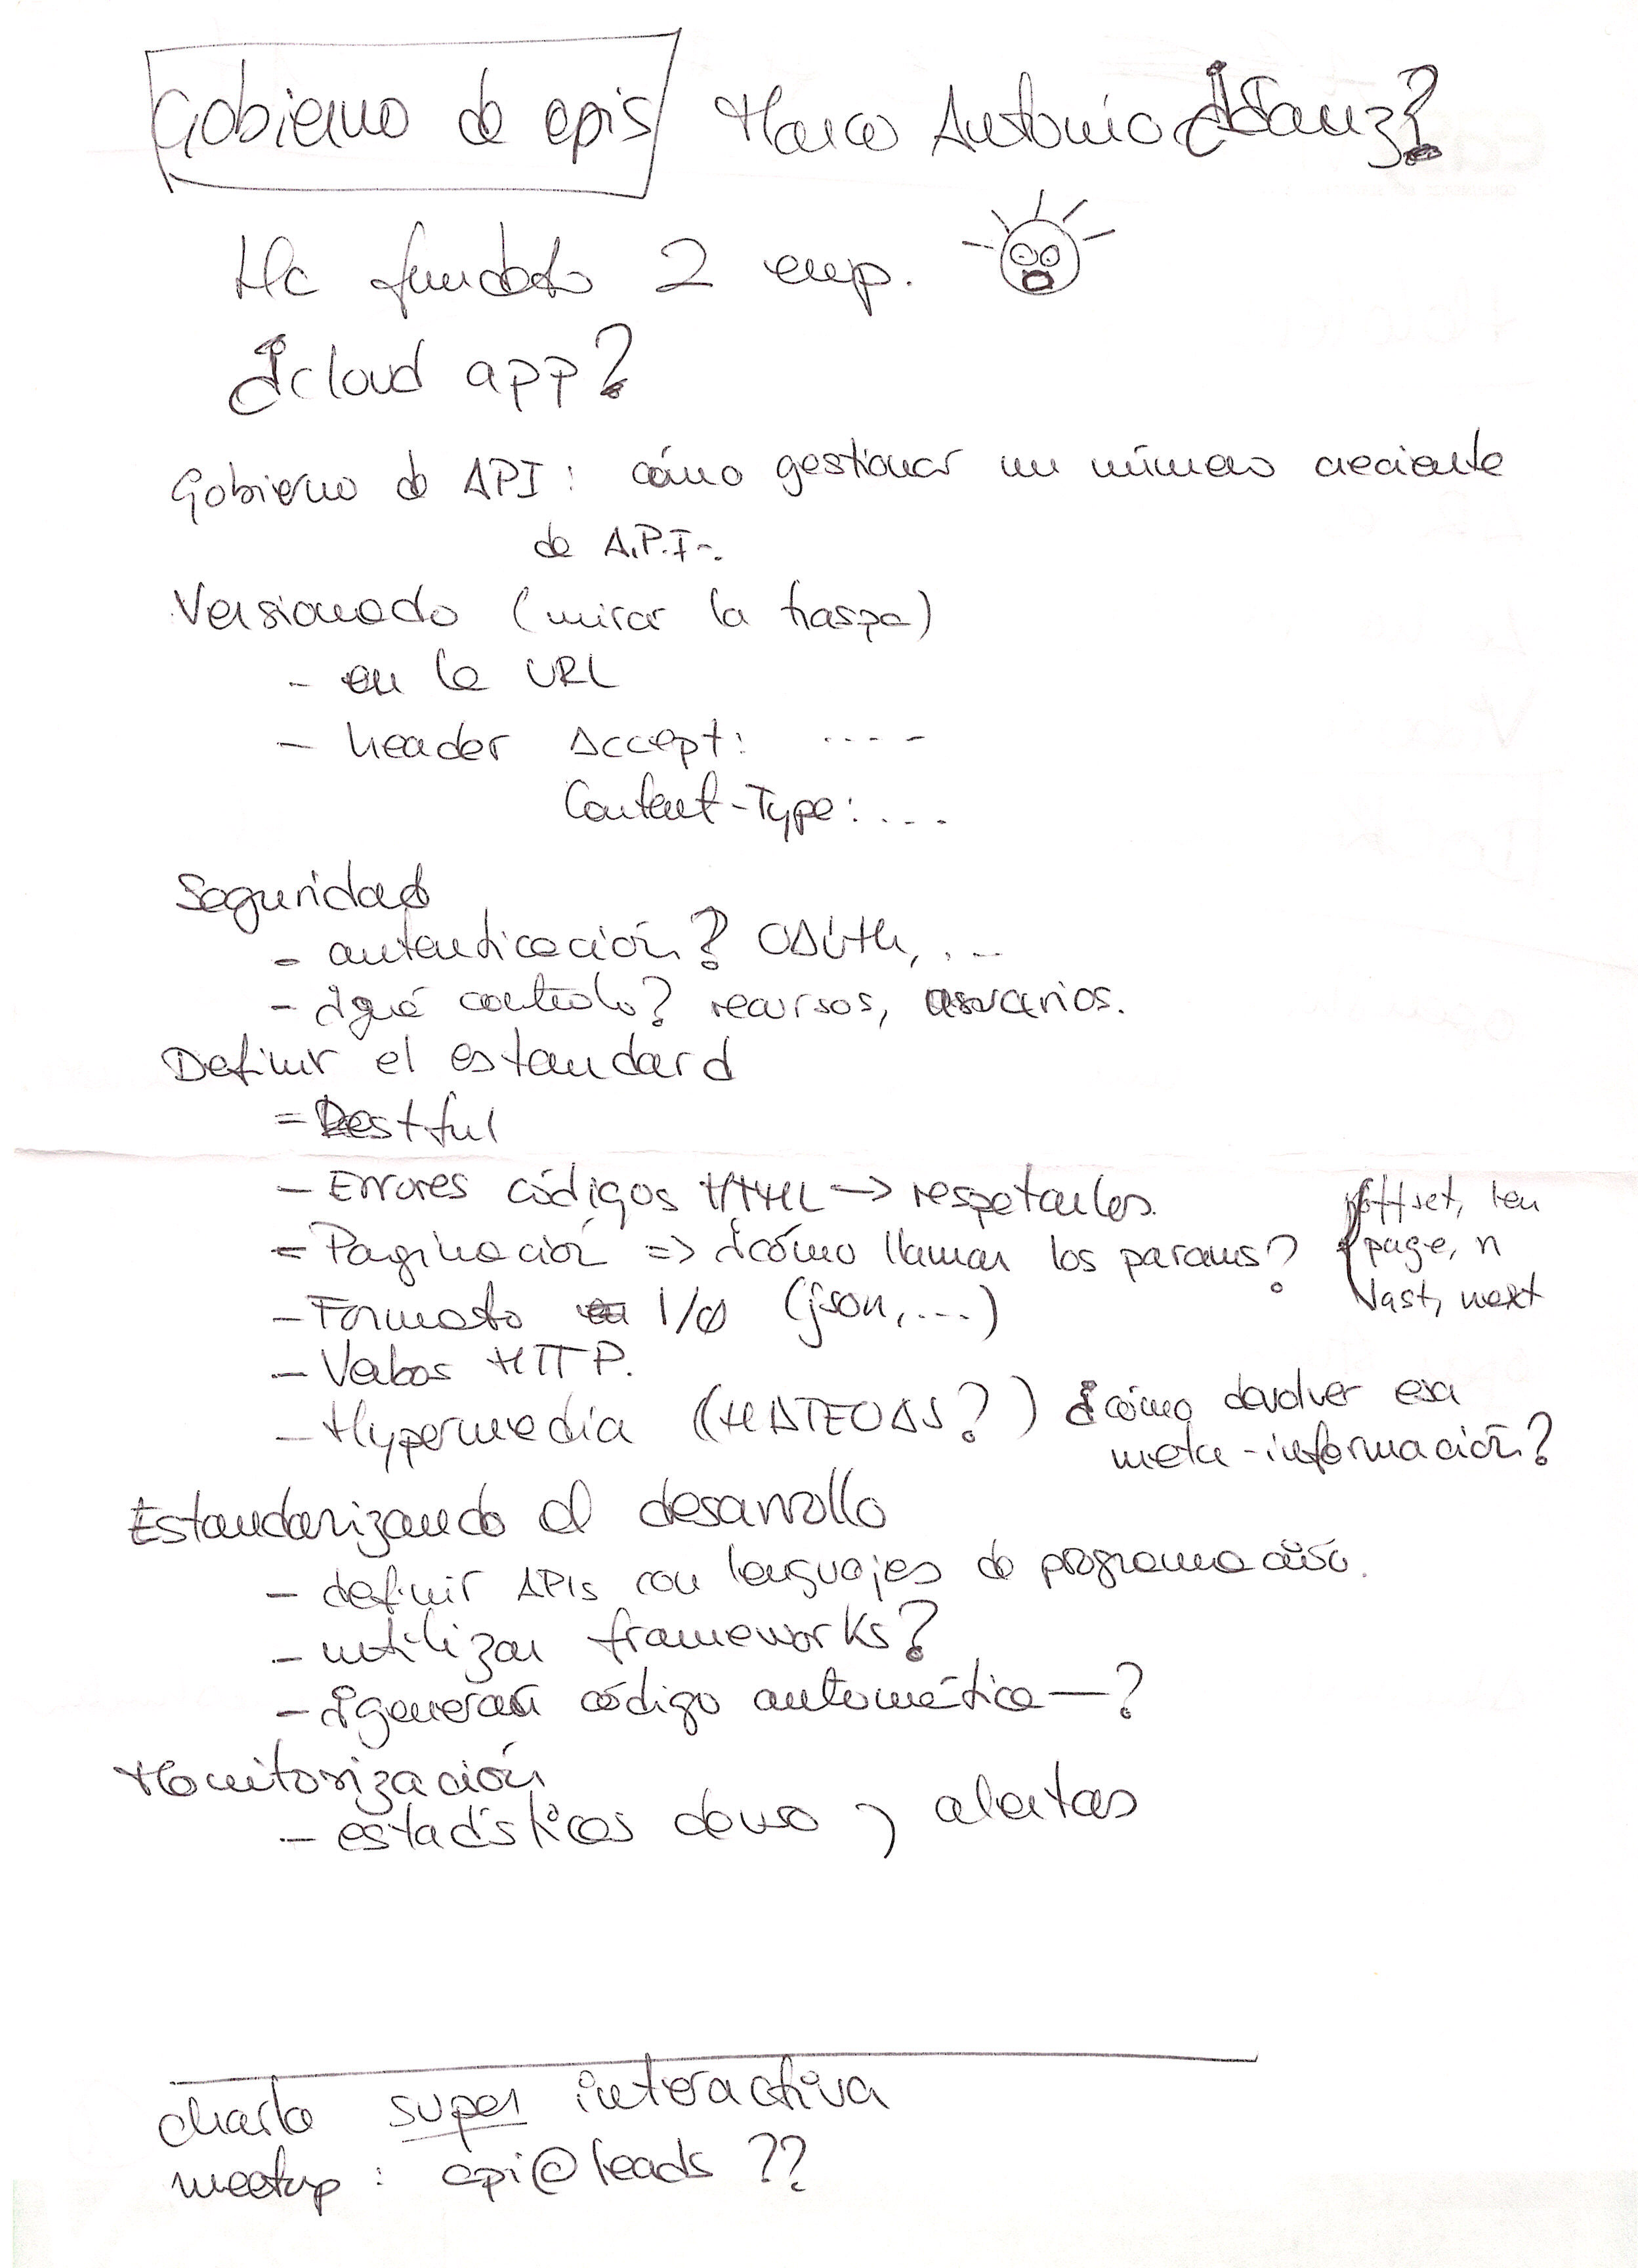 Gobierno de apis Marco Antonio ¿Sanz?
Ha fundado 2 emp.
¿cloud app?
Gobierno de API: cómo gestionar un número creciente
de A.P.I-.
Versionado (mirar la traspa)
- en la URL
- header Accept: ....
Content-Type: ....
Seguridad
- autenticación? OAuth, ...
- ¿qué controlo? recursos, usuarios.
Definir el estandard
- Restful
- Errores códigos HTML -> respetarlos.
- Paginación => ¿cómo llamar los params? offset, len
page, n
last, next
- Formato I/O (json, ...)
- Verbos HTTP.
- Hypermedia (HATEOAS?) ¿cómo devolver esa
meta-información?
Estandarizando el desarrollo
- definir APIs con lenguajes de programación.
- utilizar frameworks?
- ¿generar código automática-?
Monitorización
- estadísticas de uso y alertas
charla super interactiva
meetup: api@leads ??